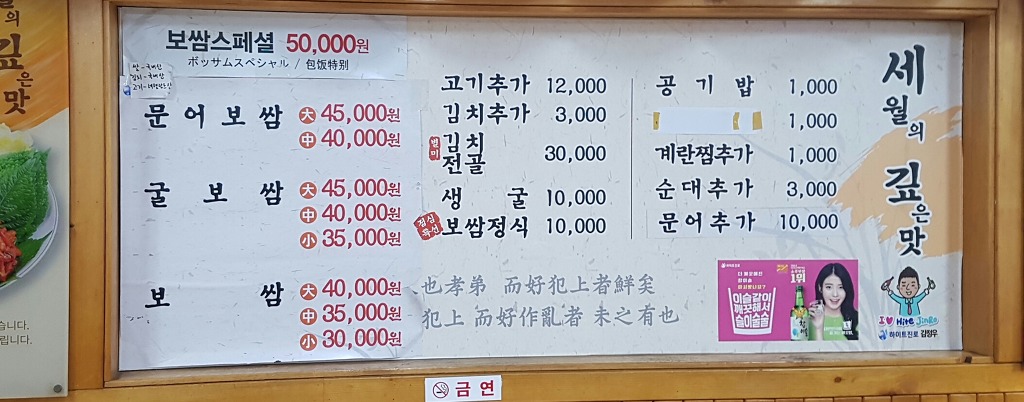 보쌈스페셜 50,000원
ボッサムスペシャル / 包饭特别
쌀-국내산
김치-국내산
문어보쌈 大 45,000원
中 40,000원
굴보쌈 大 45,000원
中 40,000원
小 35,000원
보쌈 大 40,000원
中 35,000원
小 30,000원
고기추가 12,000
김치추가 3,000
별미 김치전골 30,000
생굴 10,000
점심특선 보쌈정식 10,000
공기밥 1,000
1,000
계란찜추가 1,000
순대추가 3,000
문어추가 10,000
也孝弟 而好犯上者鮮矣
犯上 而好作亂者 未之有也
세월의 깊은맛
월의 깊은맛
이슬같이
깨끗해서
술이술술
1위
I ♥ Hite Jinro
하이트진로 김정우
습니다.
립니다.
금연